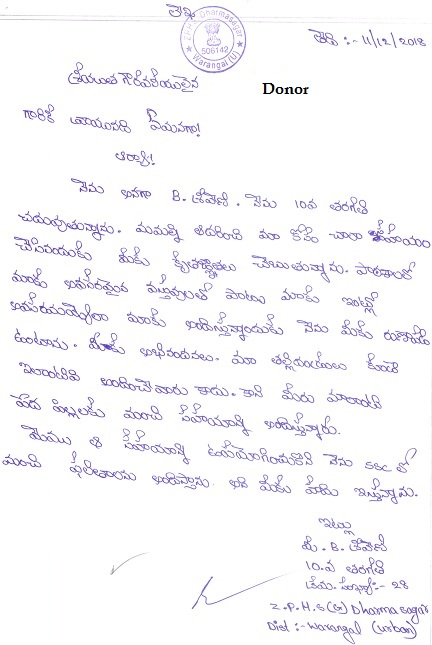 లేఖ
Z.P.H.S Dharmasagar
506142
★ Warangal (U) ★
తేది :- 11/12/2018
శ్రీయుత గౌరవనీయులైన
Donor
గారికి వ్రాయునది ఏమనగా!
ఆర్యా!
నేను అనగా B. శ్రీవాణి. నేను 10వ తరగతి
చదువుతున్నాను. మమల్ని ఆదరించి మా కోసం చాలా సహాయం
చేసినందుకు మీకు కృతజ్ఞతలు చెబుతున్నాను. పాఠశాలలో
మాకు అవసరమైన వస్తువులతో పాటు మాకు ఇంట్లో
మాకు అందిస్తున్నందుకు నేను మీకు రుణపడి
ఉంటాను. మీకు అభినందనలు. మా తల్లిదండ్రులు కంటే
ఇలాంటివి అందించేవారు కాదు. కాని మీరు మాలాంటి
పేద పిల్లలకు మంచి సహాయాన్ని అందిస్తున్నారు.
మేము ఆ సహాయాన్ని ఉపయోగించుకొని నేను SSC లో
మంచి ఫలితాలను అందిస్తాను. అని మీకు హామి ఇస్తున్నాను.
ఇట్లు
మీ. B. శ్రీవాణి
10.వ తరగతి
క్రమ. సంఖ్య:- 28
Z.P.H.S (G) Dharmasagar
Dist :- Warangal (urban)